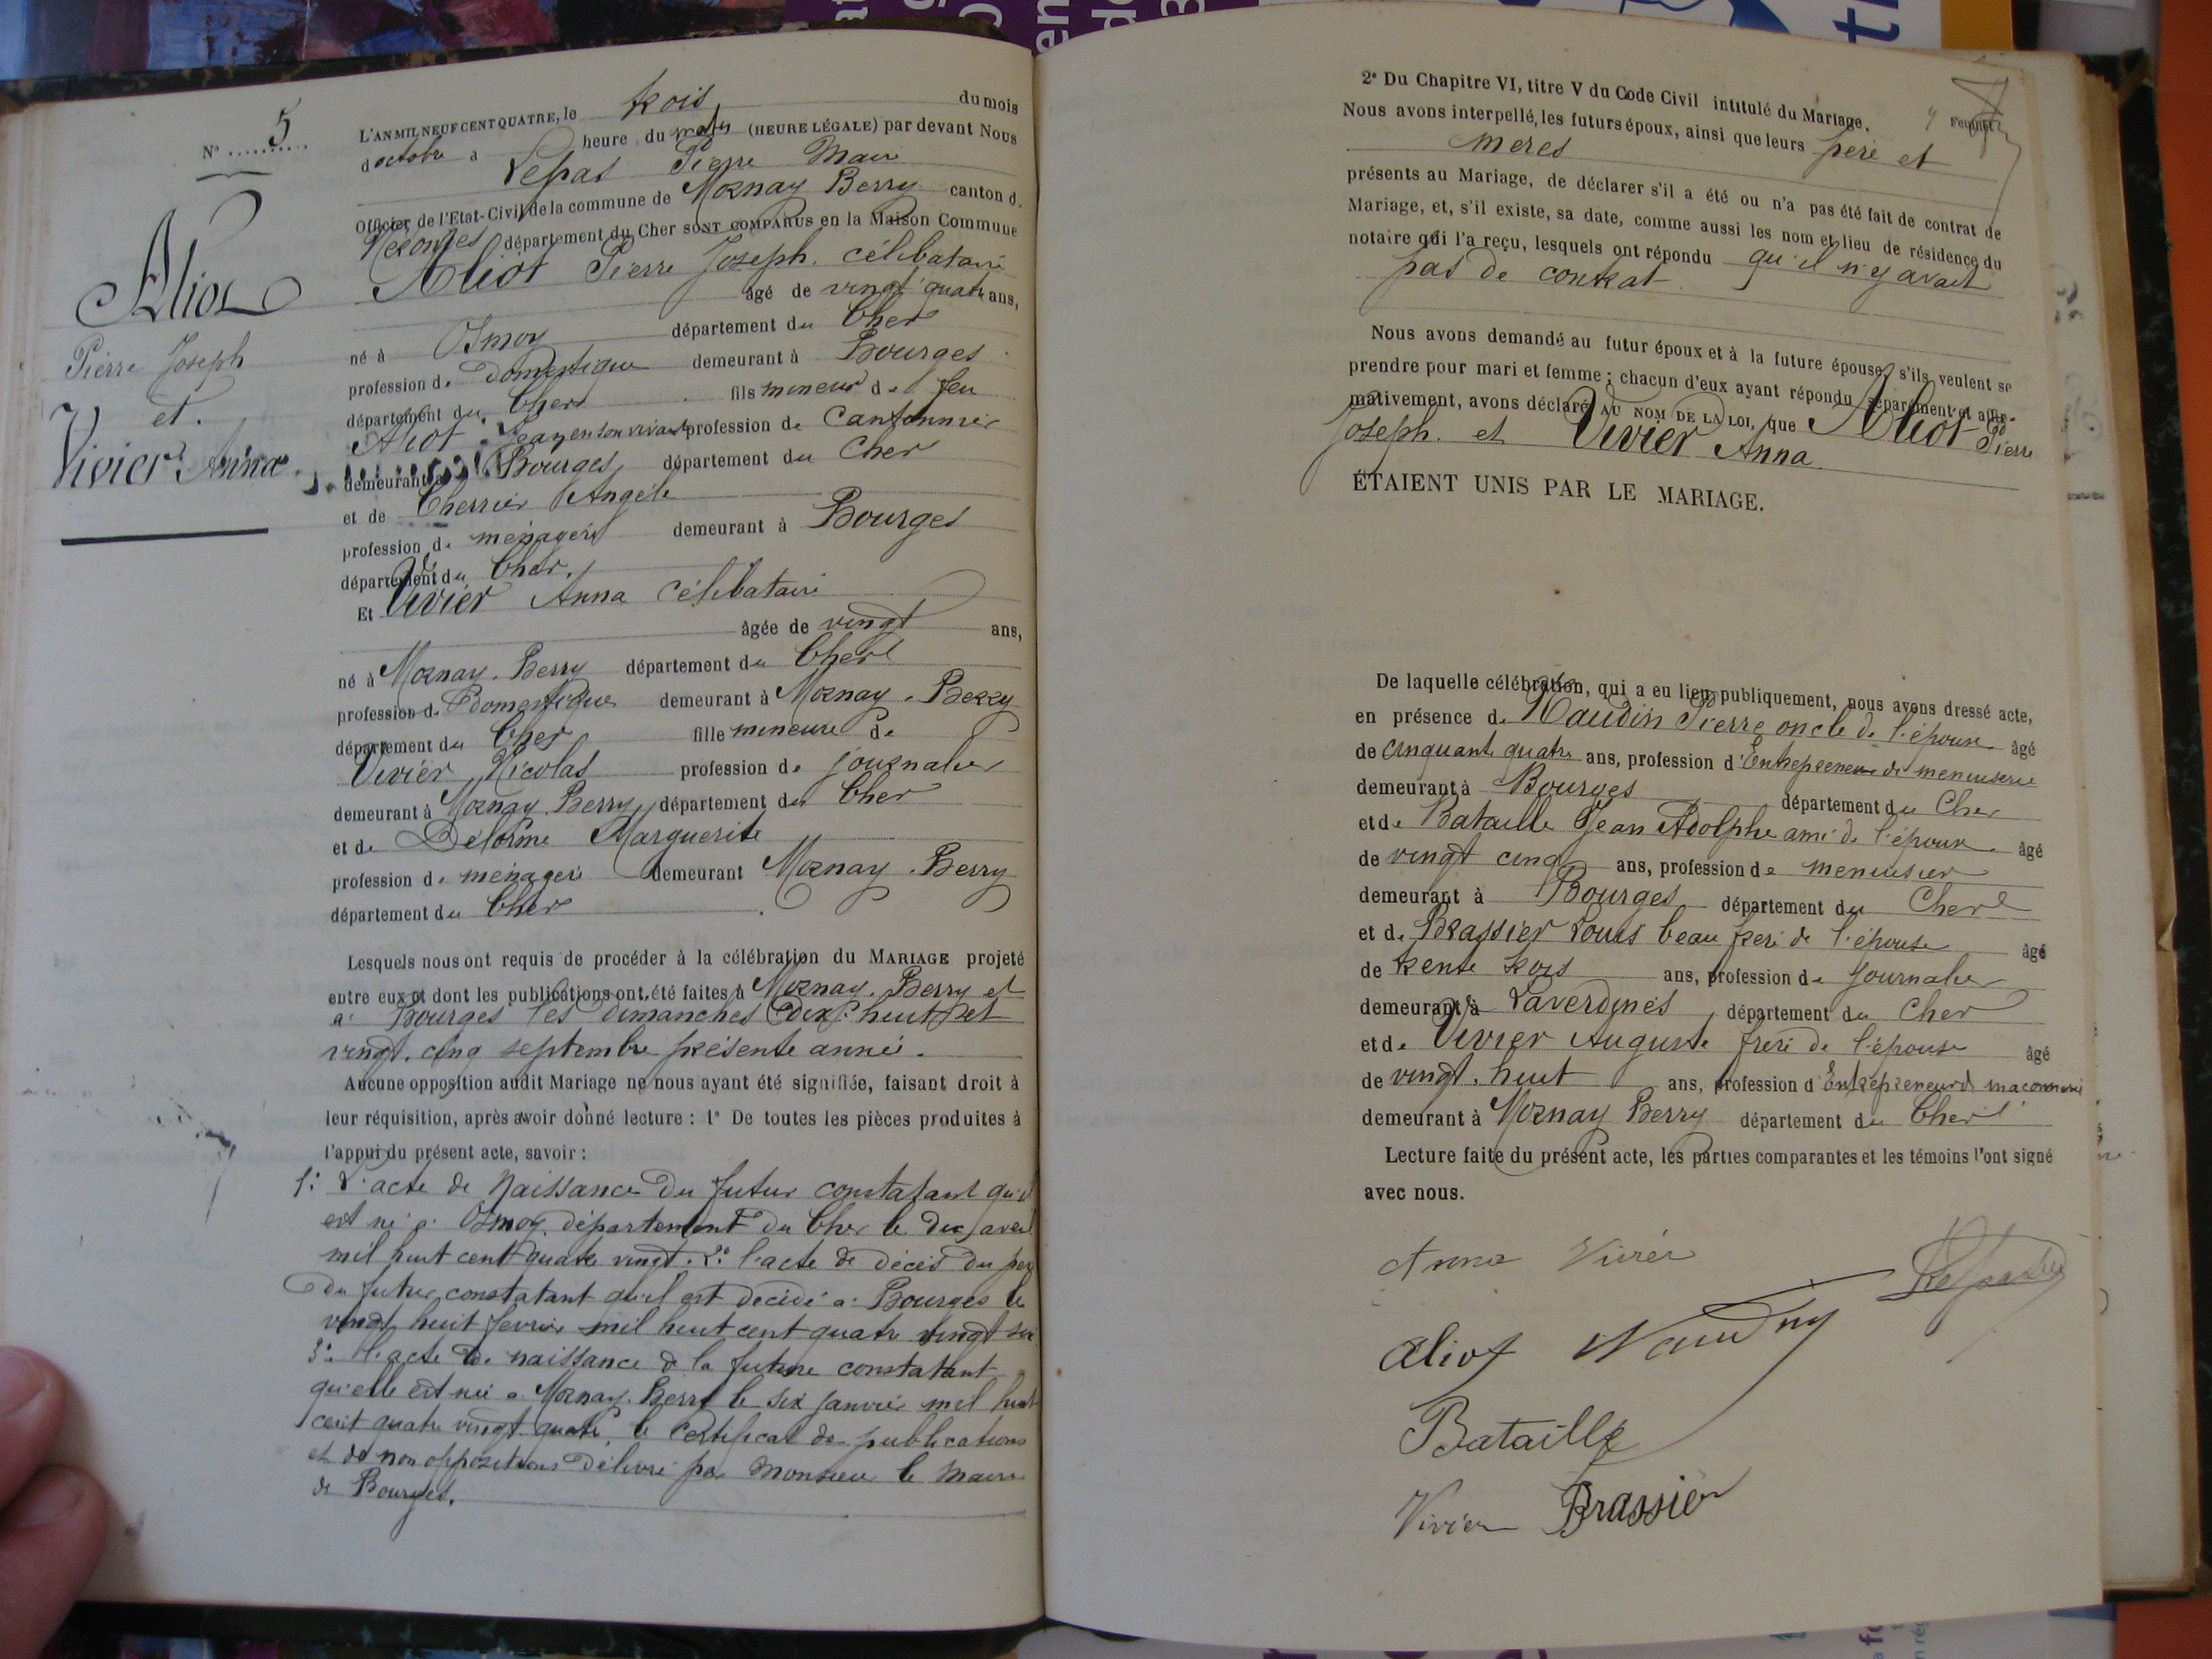 N° 5
Aliot
Pierre Joseph
et
Vivier Anna
L'AN MIL NEUF CENT QUATRE, le trois du mois
d'octobre à heure du matin (HEURE LÉGALE) par devant Nous
Lepas Pierre Maire
Officier de l'Etat-Civil de la commune de Mornay Berry canton de
Nérondes département du Cher SONT COMPARUS en la Maison Commune
Aliot Pierre Joseph célibataire
âgé de vingt quatre ans,
né à Osmoy département du Cher
profession de Domestique demeurant à Bourges
département du Cher fils mineur de feu
Aliot Jean en son vivant profession de Cantonnier
demeurant à Bourges département du Cher
et de Cherrier Angèle
profession de ménagère demeurant à Bourges
département du Cher.
Et Vivier Anna célibataire
âgée de vingt ans,
né à Mornay-Berry département du Cher
profession de Domestique demeurant à Mornay-Berry
département du Cher fille mineure de
Vivier Nicolas profession de journalier
demeurant à Mornay Berry département du Cher
et de Delorme Marguerite
profession de ménagère demeurant Mornay-Berry
département du Cher
Lesquels nous ont requis de procéder à la célébration du MARIAGE projeté
entre eux et dont les publications ont été faites à Mornay-Berry et
à Bourges les dimanches Dix-huit et
vingt-cinq septembre présente année.
Aucune opposition audit Mariage ne nous ayant été signifiée, faisant droit à
leur réquisition, après avoir donné lecture : 1° De toutes les pièces produites à
l'appui du présent acte, savoir :
1° L'acte de Naissance du futur constatant qu'il
est né à Osmoy département du Cher le dix avril
mil huit cent quatre vingt. 2° l'acte de décès du père
du futur constatant qu'il est décédé à Bourges le
vingt huit fevrier mil huit cent quatre vingt six
3° l'acte de naissance de la future constatant
qu'elle est née à Mornay-Berry le six janvier mil huit
cent quatre vingt quatre, le certificat de publications
et de non oppositions délivré par Monsieur le Maire
de Bourges.
2° Du Chapitre VI, titre V du Code Civil intitulé du Mariage.
Feuillet
Nous avons interpellé, les futurs époux, ainsi que leurs père et
meres
présents au Mariage, de déclarer s'il a été ou n'a pas été fait de contrat de
Mariage, et, s'il existe, sa date, comme aussi les nom et lieu de résidence du
notaire qui l'a reçu, lesquels ont répondu qu'il n'y avait
pas de contrat
Nous avons demandé au futur époux et à la future épouse, s'ils veulent se
prendre pour mari et femme ; chacun d'eux ayant répondu séparément et affir-
mativement, avons déclaré AU NOM DE LA LOI, que Aliot Pierre
Joseph et Vivier Anna
ÉTAIENT UNIS PAR LE MARIAGE.
De laquelle célébration, qui a eu lieu publiquement, nous avons dressé acte,
en présence de Naudin Pierre oncle de l'époux âgé
de cinquante quatre ans, profession d'Entrepreneur de menuiserie
demeurant à Bourges département du Cher
et de Bataille Jean Adolphe ami de l'époux âgé
de vingt cinq ans, profession de menuisier
demeurant à Bourges département du Cher
et de Brassier Louis beau frère de l'épouse âgé
de trente trois ans, profession de Journalier
demeurant à Laverdines département du Cher
et de Vivier Auguste frère de l'épouse âgé
de vingt-huit ans, profession d'Entrepreneur de maçonnerie
demeurant à Mornay Berry département du Cher
Lecture faite du présent acte, les parties comparantes et les témoins l'ont signé
avec nous.
Anna Vivier
Aliot Naudin
Bataille
Vivier Brassier